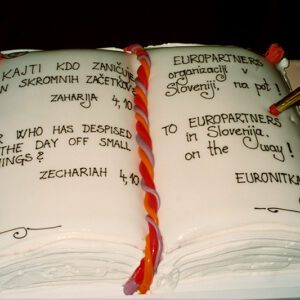 KAJTI KDO ZANIČUJE
N SKROMNIH ZAČETKOV?
ZAHARIJA 4,10
R WHO HAS DESPISED
THE DAY OFF SMALL
HINGS?
ZECHARIAH 4,10
EUROPARTNERS
organizaciji v
Sloveniji, na pot!
TO EUROPARTNERS
in Slovenija.
on the way!
EURONITKA